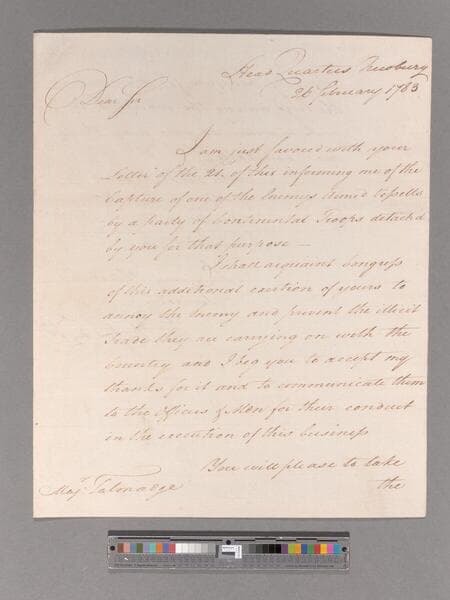 Head Quarters Newburg
26 February 1783
Dear Sir
I am just favored with your
Letter of the 21. of this informing me of the
Capture of one of the Enemys armed Vessells
by a party of Continental Troops detach'd
by you for that purpose —
I shall acquaint Congress
of this additional exertion of yours to
annoy the Enemy and prevent the illicit
Trade they are carrying on with the
Country and I beg you to accept my
thanks for it and to communicate them
to the Officers & Men for their conduct
in the execution of this business
You will please to take
the
Majr. Talmadge